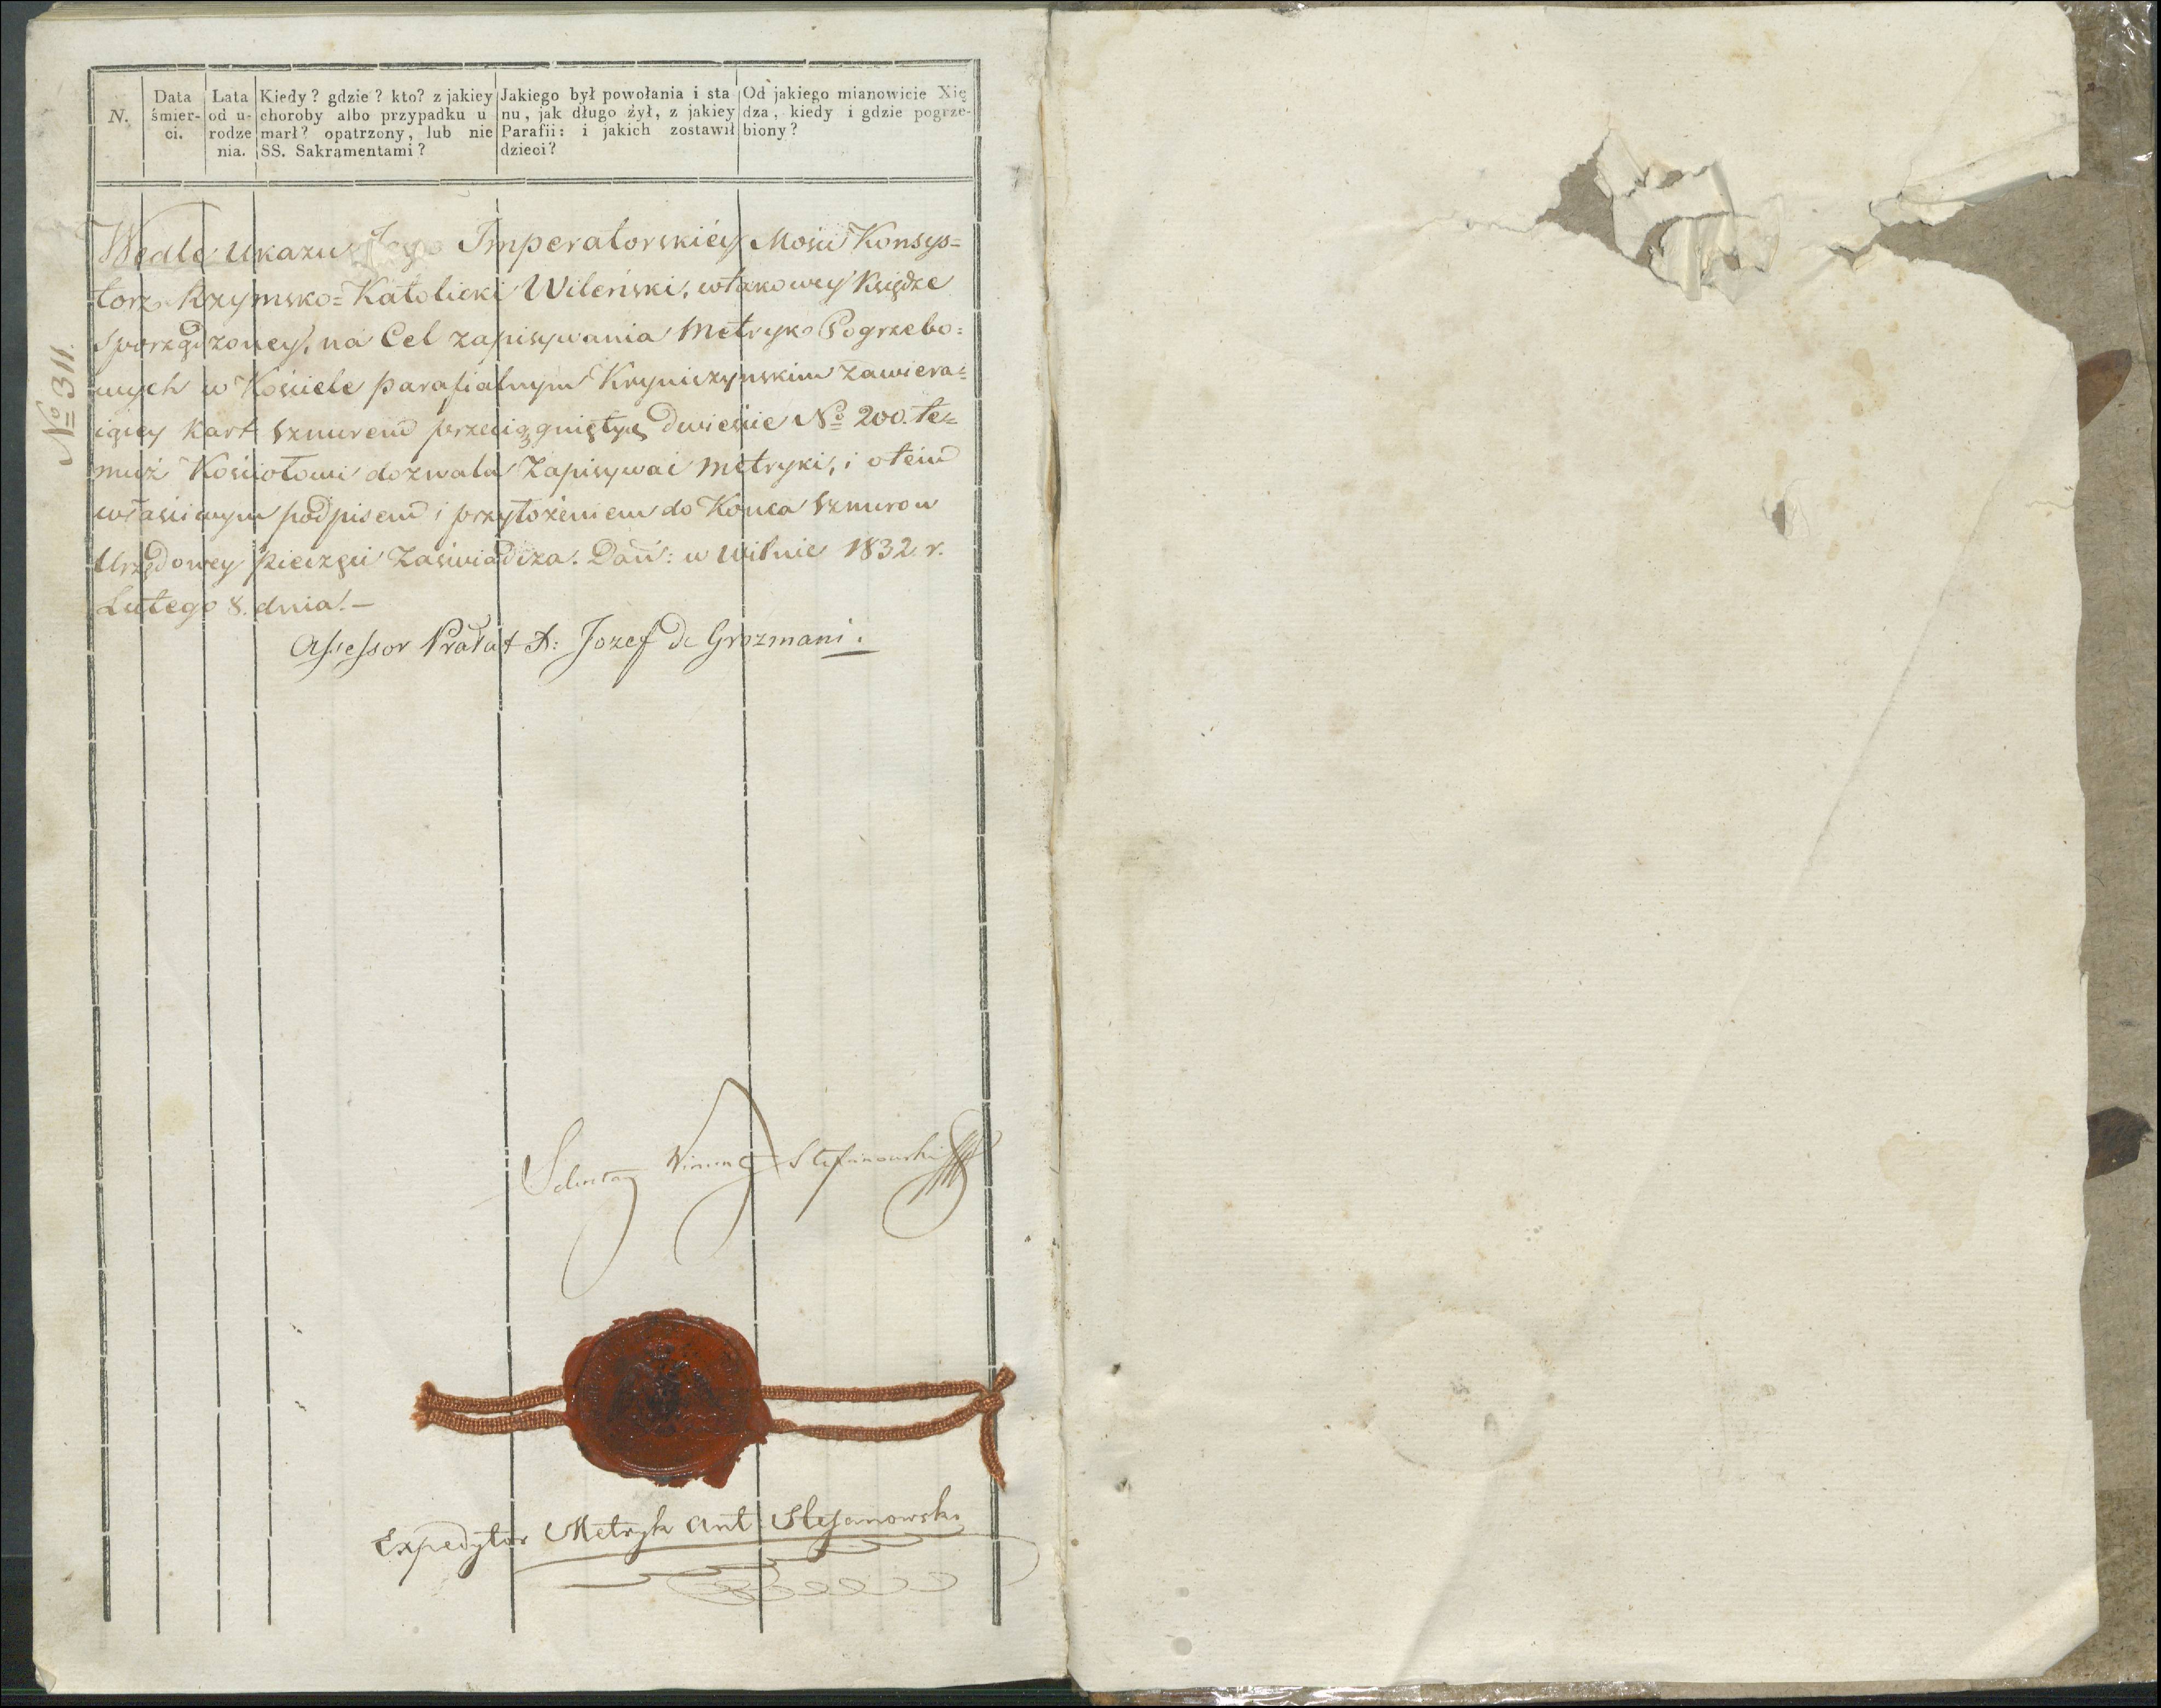 N.
Data śmier-
ci.
Lata
od u-
rodze
nia.
Kiedy? gdzie? kto? z jakiey
choroby albo przypadku u
marł? opatrzony, lub nie
SS. Sakramentami?
Jakiego był powołania i sta
nu, jak długo żył, z jakiey
Parafii: i jakich zostawił
dzieci?
Od jakiego mianowicie Xię
dza, kiedy i gdzie pogrze-
biony?
No 311.
Wedle Ukazu Jego Imperatorskiéy Mości Konsys=
torz Rzymsko=Katolicki Wileński, w takowey Księdze
sporządzoney, na Cel zapisywania Metryk Pogrzebo=
wych w Kościele parafialnym Kryniczynskim zawiera=
iącey Kart sznurem przeciągniętych dwieście No 200. te=
muż Kościołowi dozwala Zapisywać metryki, i o tém
właściwym podpisem i przyłożeniem do Końca sznurow
Urzędowey pieczęci Zaświadcza. Dań: w Wilnie 1832. r.
Lutego 8. dnia. —
Assessor Prałat A: Jozef de Grozmani.
Sekretarz Wincenty Stefanowski
Expedytor Metryk Ant: Stefanowski